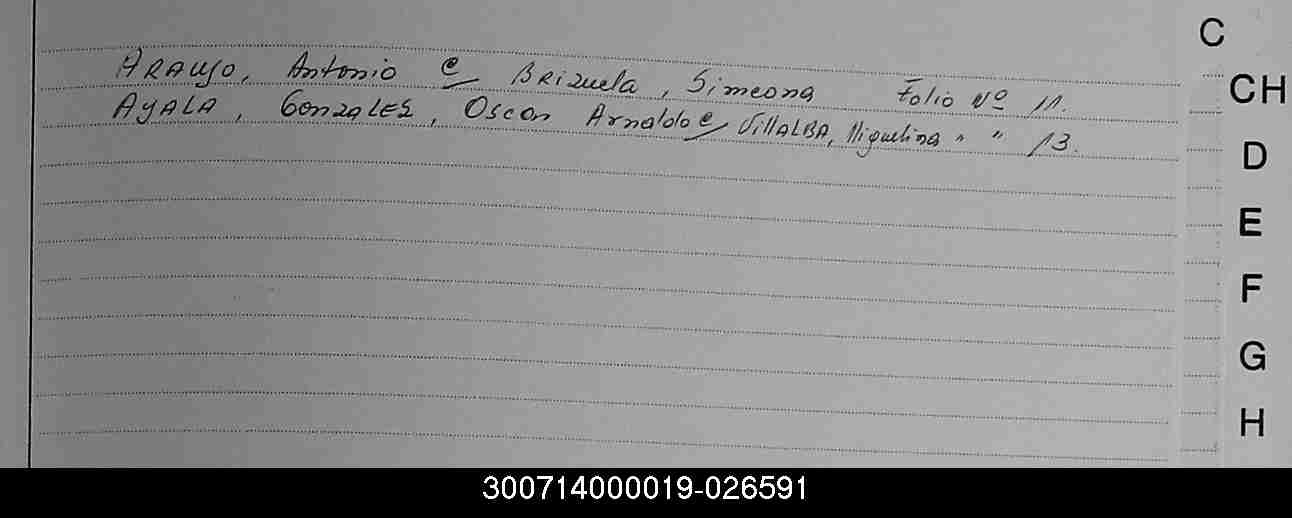 C
ARAUJO, Antonio c/ BRIZuela, Simeona Folio Nº 11.
CH
AYALA, GONZALEZ, Oscar Arnaldo c/ VillALBA, Miguelina " " 13.
D
E
F
G
H
300714000019-026591